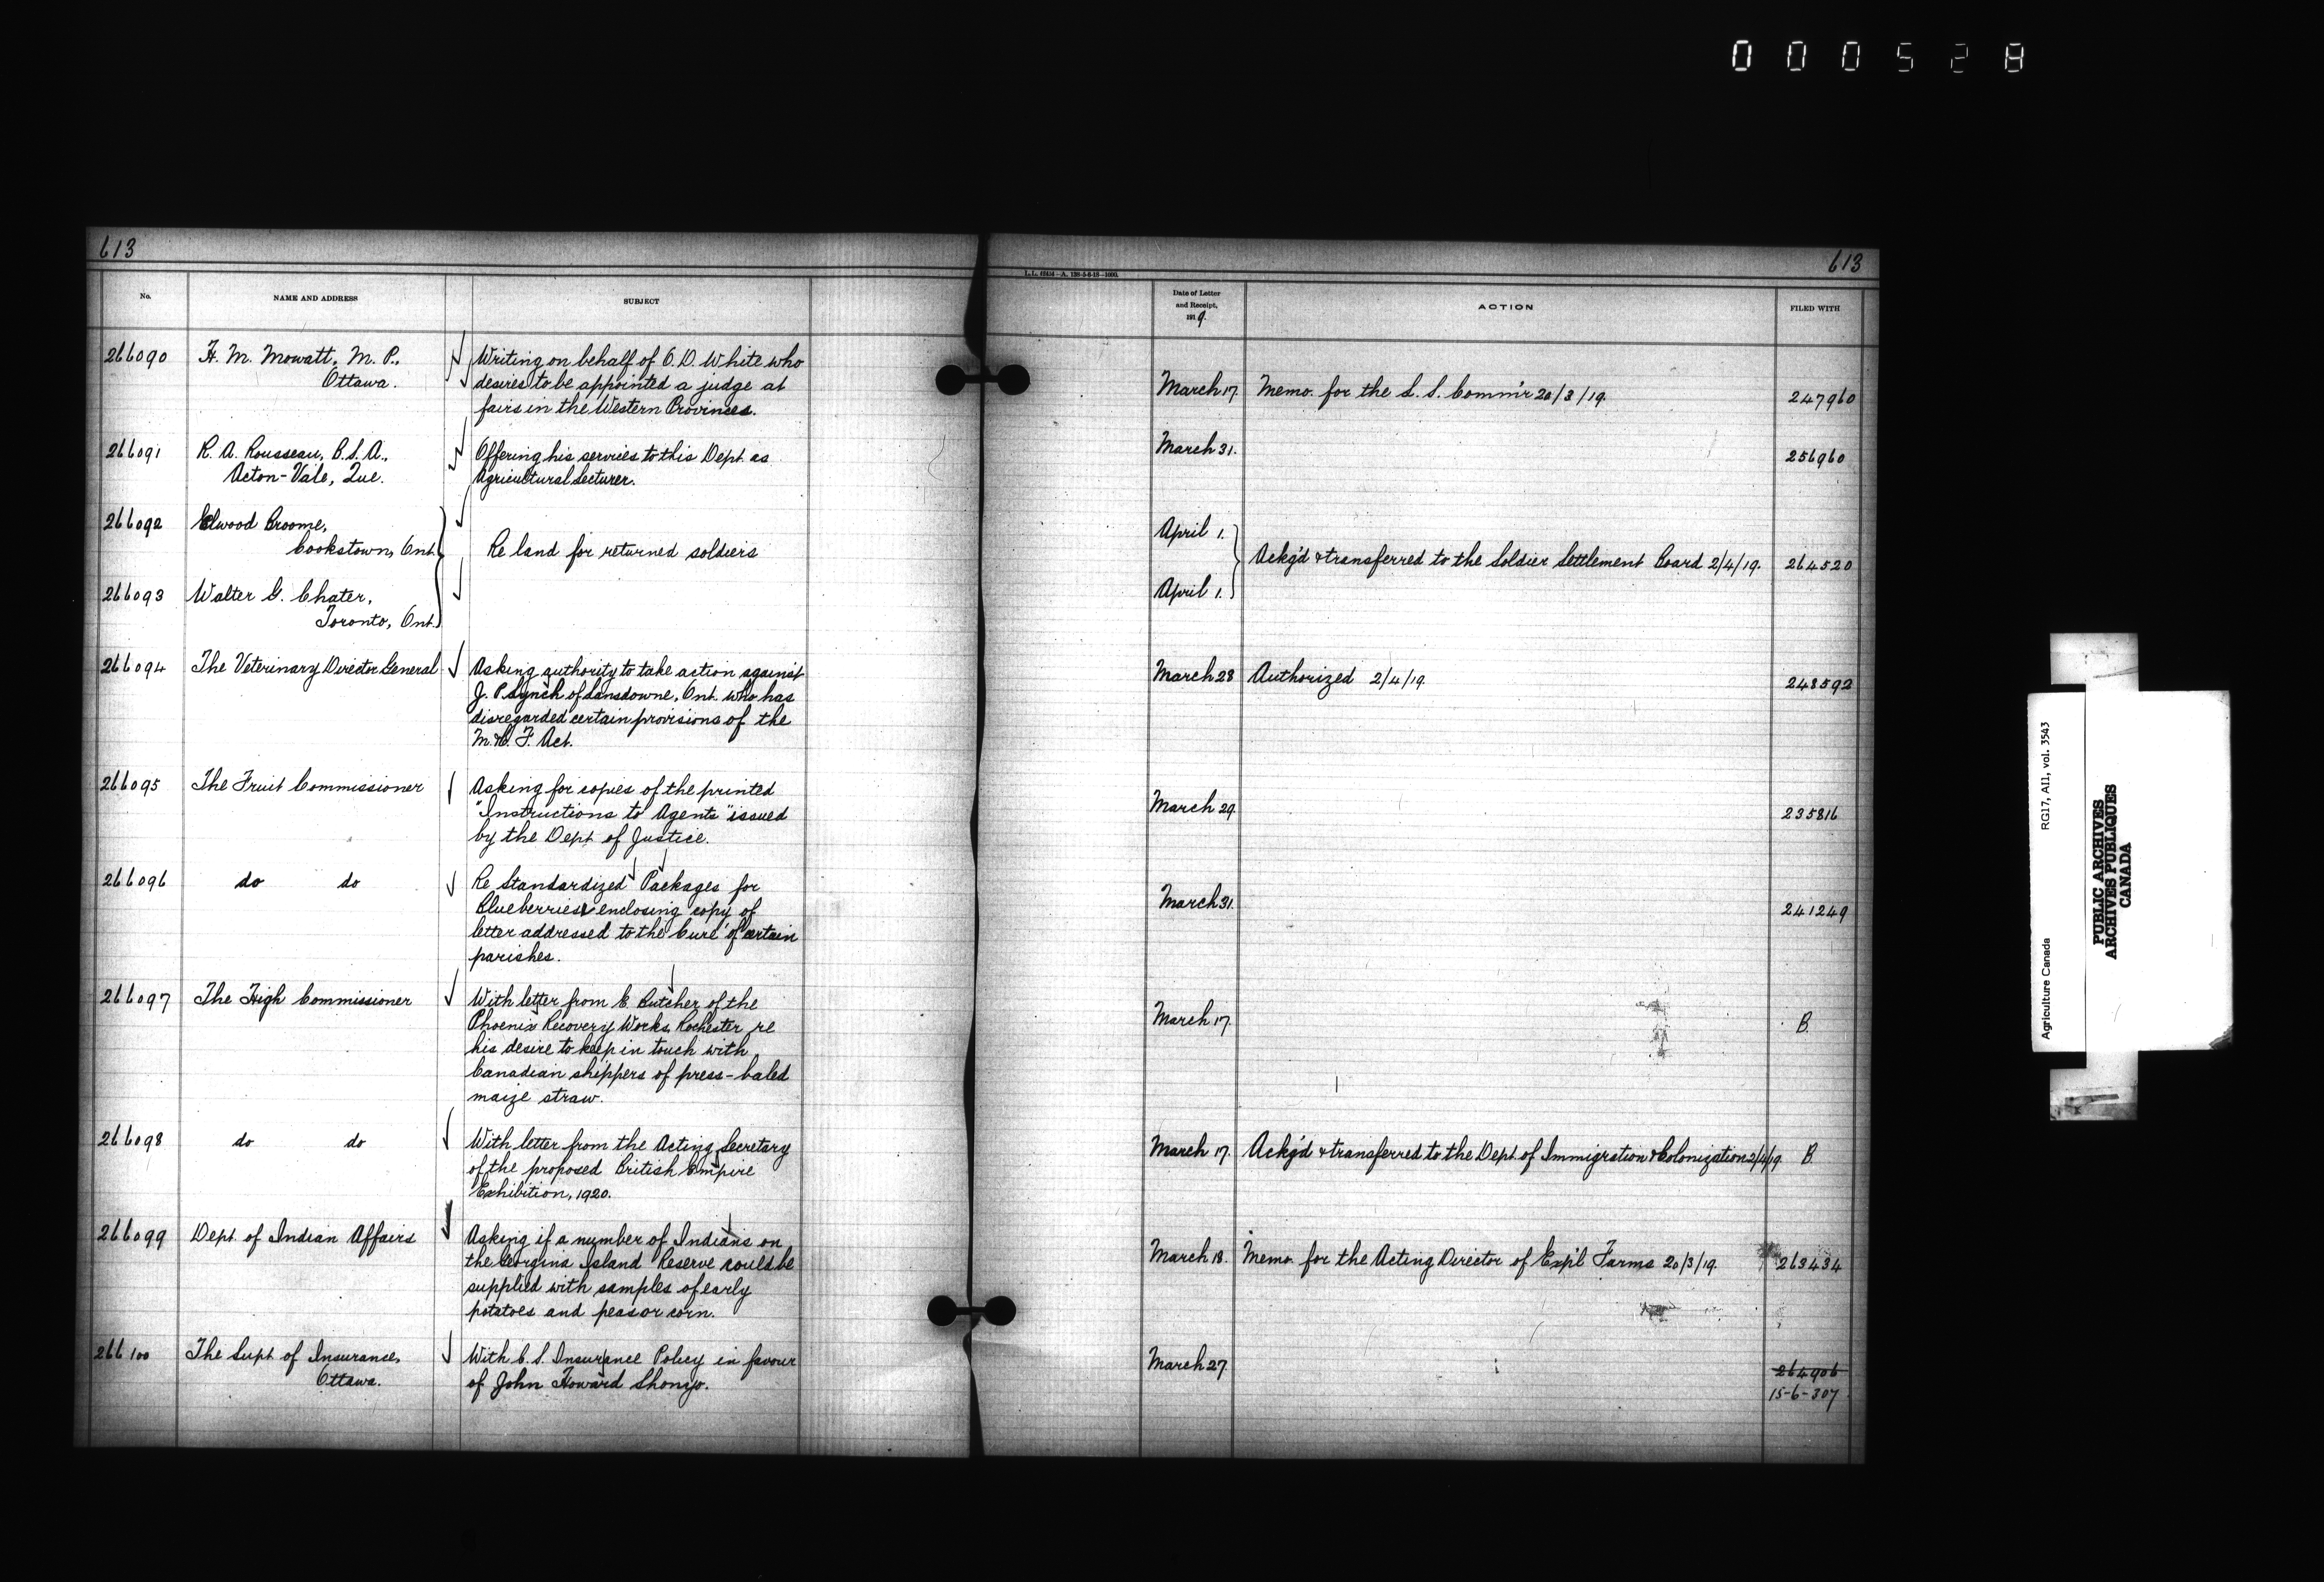 000528
613
613
L.L. 42414-A. 138-5-6-18-1000.
No.
NAME AND ADDRESS
SUBJECT
Date of Letter
and Receipt,
1919.
ACTION
FILED WITH
266090
H. M. Mowatt, M. P.,
Ottawa.
Writing on behalf of O. D. White who
desires to be appointed a judge at
fairs in the Western Provinces.
March 17.
Memo. for the L. S. Comm'r 20/3/19.
247960
266091
R. A. Rousseau, B. S. A.,
Acton-Vale, Que.
Offering his services to this Dept. as
Agricultural Lecturer.
March 31.
256960
266092
Elwood Broome,
Cookstown, Ont.
266093
Walter G. Chater,
Toronto, Ont.
Re land for returned soldiers
April 1.
April 1.
Ackg'd & transferred to the Soldier Settlement Board 2/4/19.
264520
266094
The Veterinary Director General
Asking authority to take action against
J. P. Lynch of Lansdowne, Ont. who has
disregarded certain provisions of the
M. & C. F. Act.
March 28
Authorized 2/4/19.
248592
266095
The Fruit Commissioner
Asking for copies of the printed
"Instructions to Agents" issued
by the Dept of Justice.
March 29.
235816
266096
do do
Re Standardized Packages for
Blueberries & enclosing copy of
letter addressed to the Curé of certain
parishes.
March 31.
241249
266097
The High Commissioner
With letter from C. Butcher of the
Phoenix Recovery Works, Rochester re
his desire to keep in touch with
Canadian shippers of press-baled
maize straw.
March 17.
B.
266098
do do
With letter from the Acting Secretary
of the proposed British Empire
Exhibition, 1920.
March 17.
Ackg'd & transferred to the Dept. of Immigration & Colonization 2/4/19.
B.
266099
Dept. of Indian Affairs
Asking if a number of Indians on
the Georgina Island Reserve could be
supplied with samples of early
potatoes and peas or corn.
March 18.
Memo. for the Acting Director of Exp'l Farms 20/3/19.
263434
266100
The Supt of Insurance,
Ottawa.
With C. S. Insurance Policy in favour
of John Howard
March 27.
264906
15-6-307
Agriculture Canada
RG17, A11, vol. 3543
PUBLIC ARCHIVES
ARCHIVES PUBLIQUES
CANADA